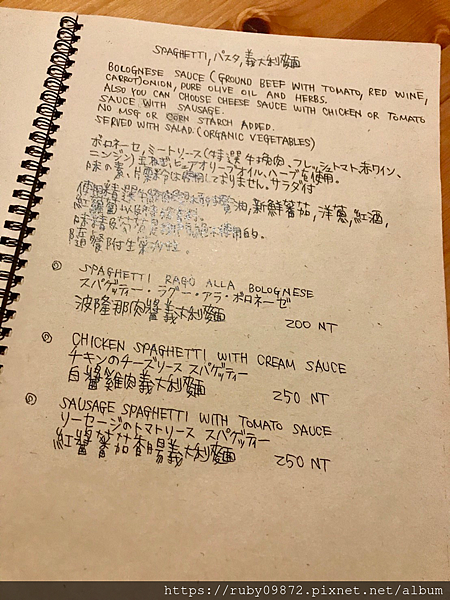 SPAGHETTI, パスタ, 義大利麵
BOLOGNESE SAUCE (GROUND BEEF WITH TOMATO, RED WINE,
CARROT) ONION, PURE OLIVE OIL AND HERBS.
ALSO YOU CAN CHOOSE CHEESE SAUCE WITH CHICKEN OR TOMATO
SAUCE WITH SAUSAGE.
NO MSG OR CORN STARCH ADDED.
SERVED WITH SALAD. (ORGANIC VEGETABLES)
ボロネーゼ, ミートソース(特選牛挽肉、フレッシュトマト, 赤ワイン、
ニンジン) 玉ねぎ, ピュアオリーブオイル, ハーブを使用。
味の素、片栗粉は使用しておりません。サラダ付
油, 新鮮蕃茄, 洋蔥, 紅酒,
使用的.
隨餐附生菜沙拉.
◎ SPAGHETTI RAGÙ ALLA BOLOGNESE
スパゲッティー・ラグー・アラ・ボロネーゼ
波隆那肉醬義大利麵 200 NT
◎ CHICKEN SPAGHETTI WITH CREAM SAUCE
チキンのチーズソース スパゲッティー
白醬雞肉義大利麵 250 NT
◎ SAUSAGE SPAGHETTI WITH TOMATO SAUCE
ソーセージのトマトソース スパゲッティー
紅醬蕃茄香腸義大利麵 250 NT
https://ruby09872.pixnet.net/album